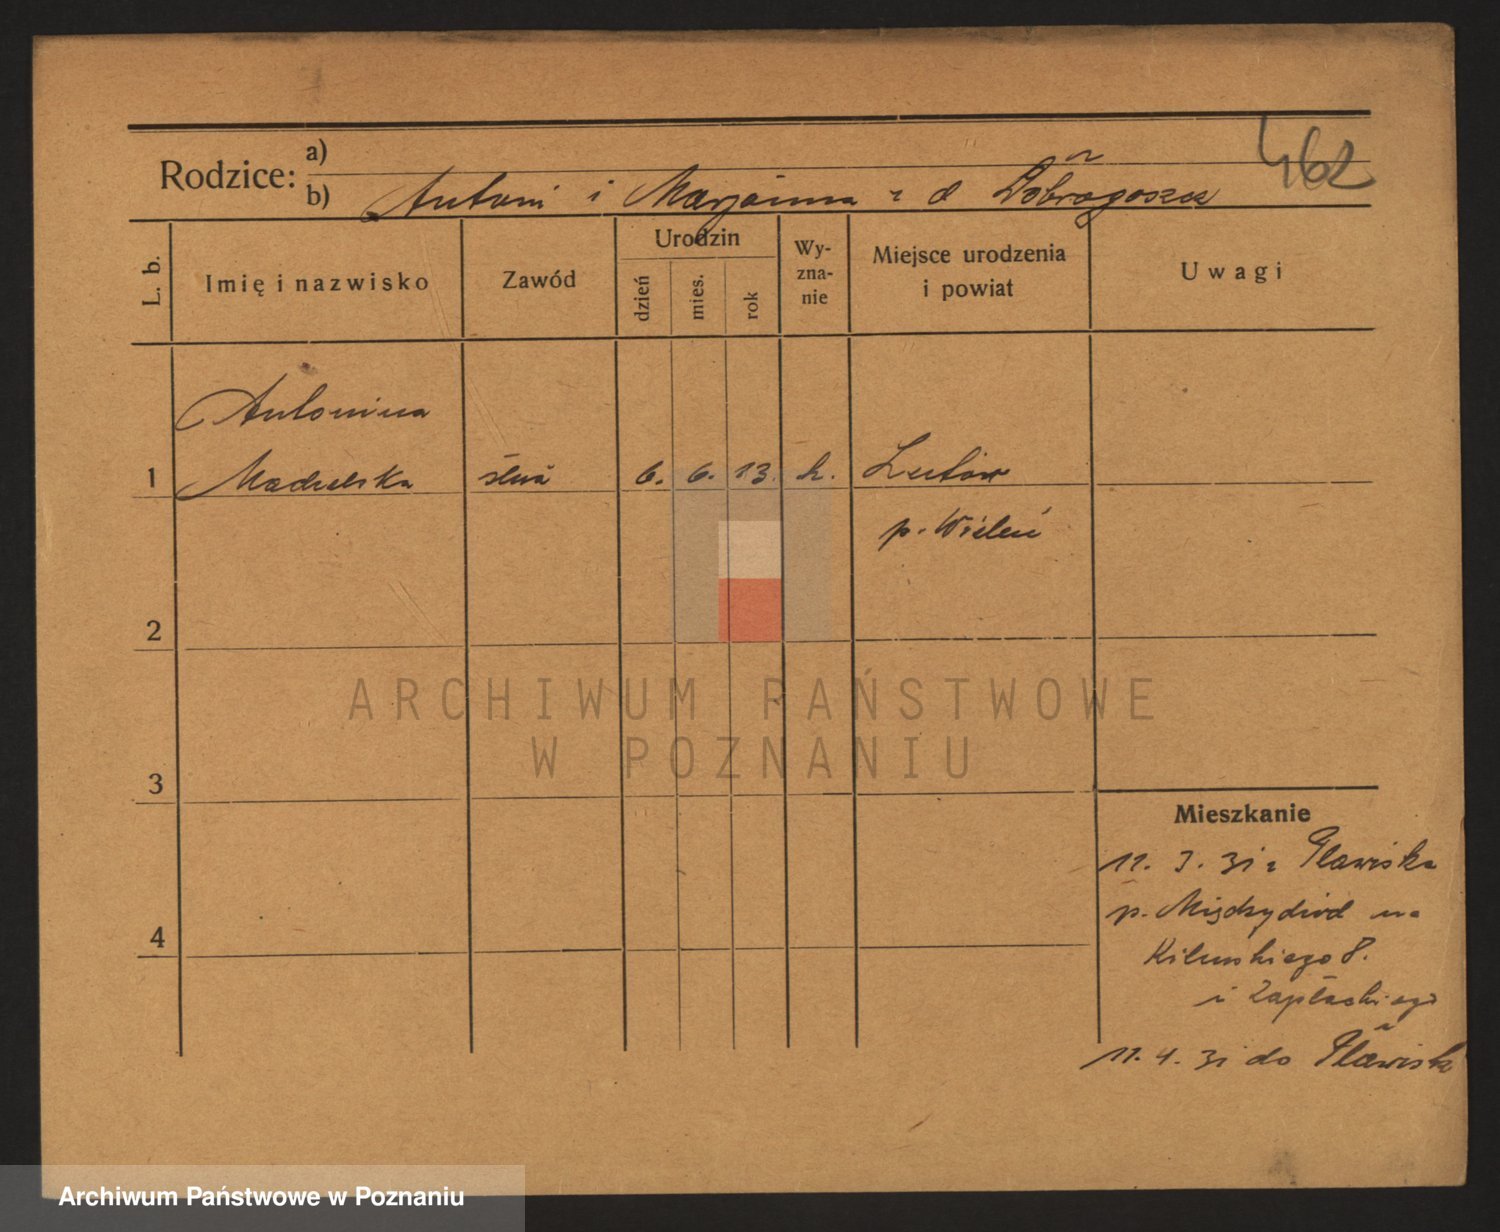 462
Rodzice:
a)
b) Antoni i Marjanna z d Dobrogoszcz
L. b.
Imię i nazwisko
Zawód
Urodzin
dzień
mies.
rok
Wy-
zna-
nie
Miejsce urodzenia
i powiat
Uwagi
Antonina
1 Machelska służ 6. 6. 13. k. Lutów
p. Wieleń
2
3
4
ARCHIWUM PAŃSTWOWE
W POZNANIU
Mieszkanie
11. 3. 31 z
p. Międzychód na
Kilińskiego 8.
11. 4. 31 do
Archiwum Państwowe w Poznaniu